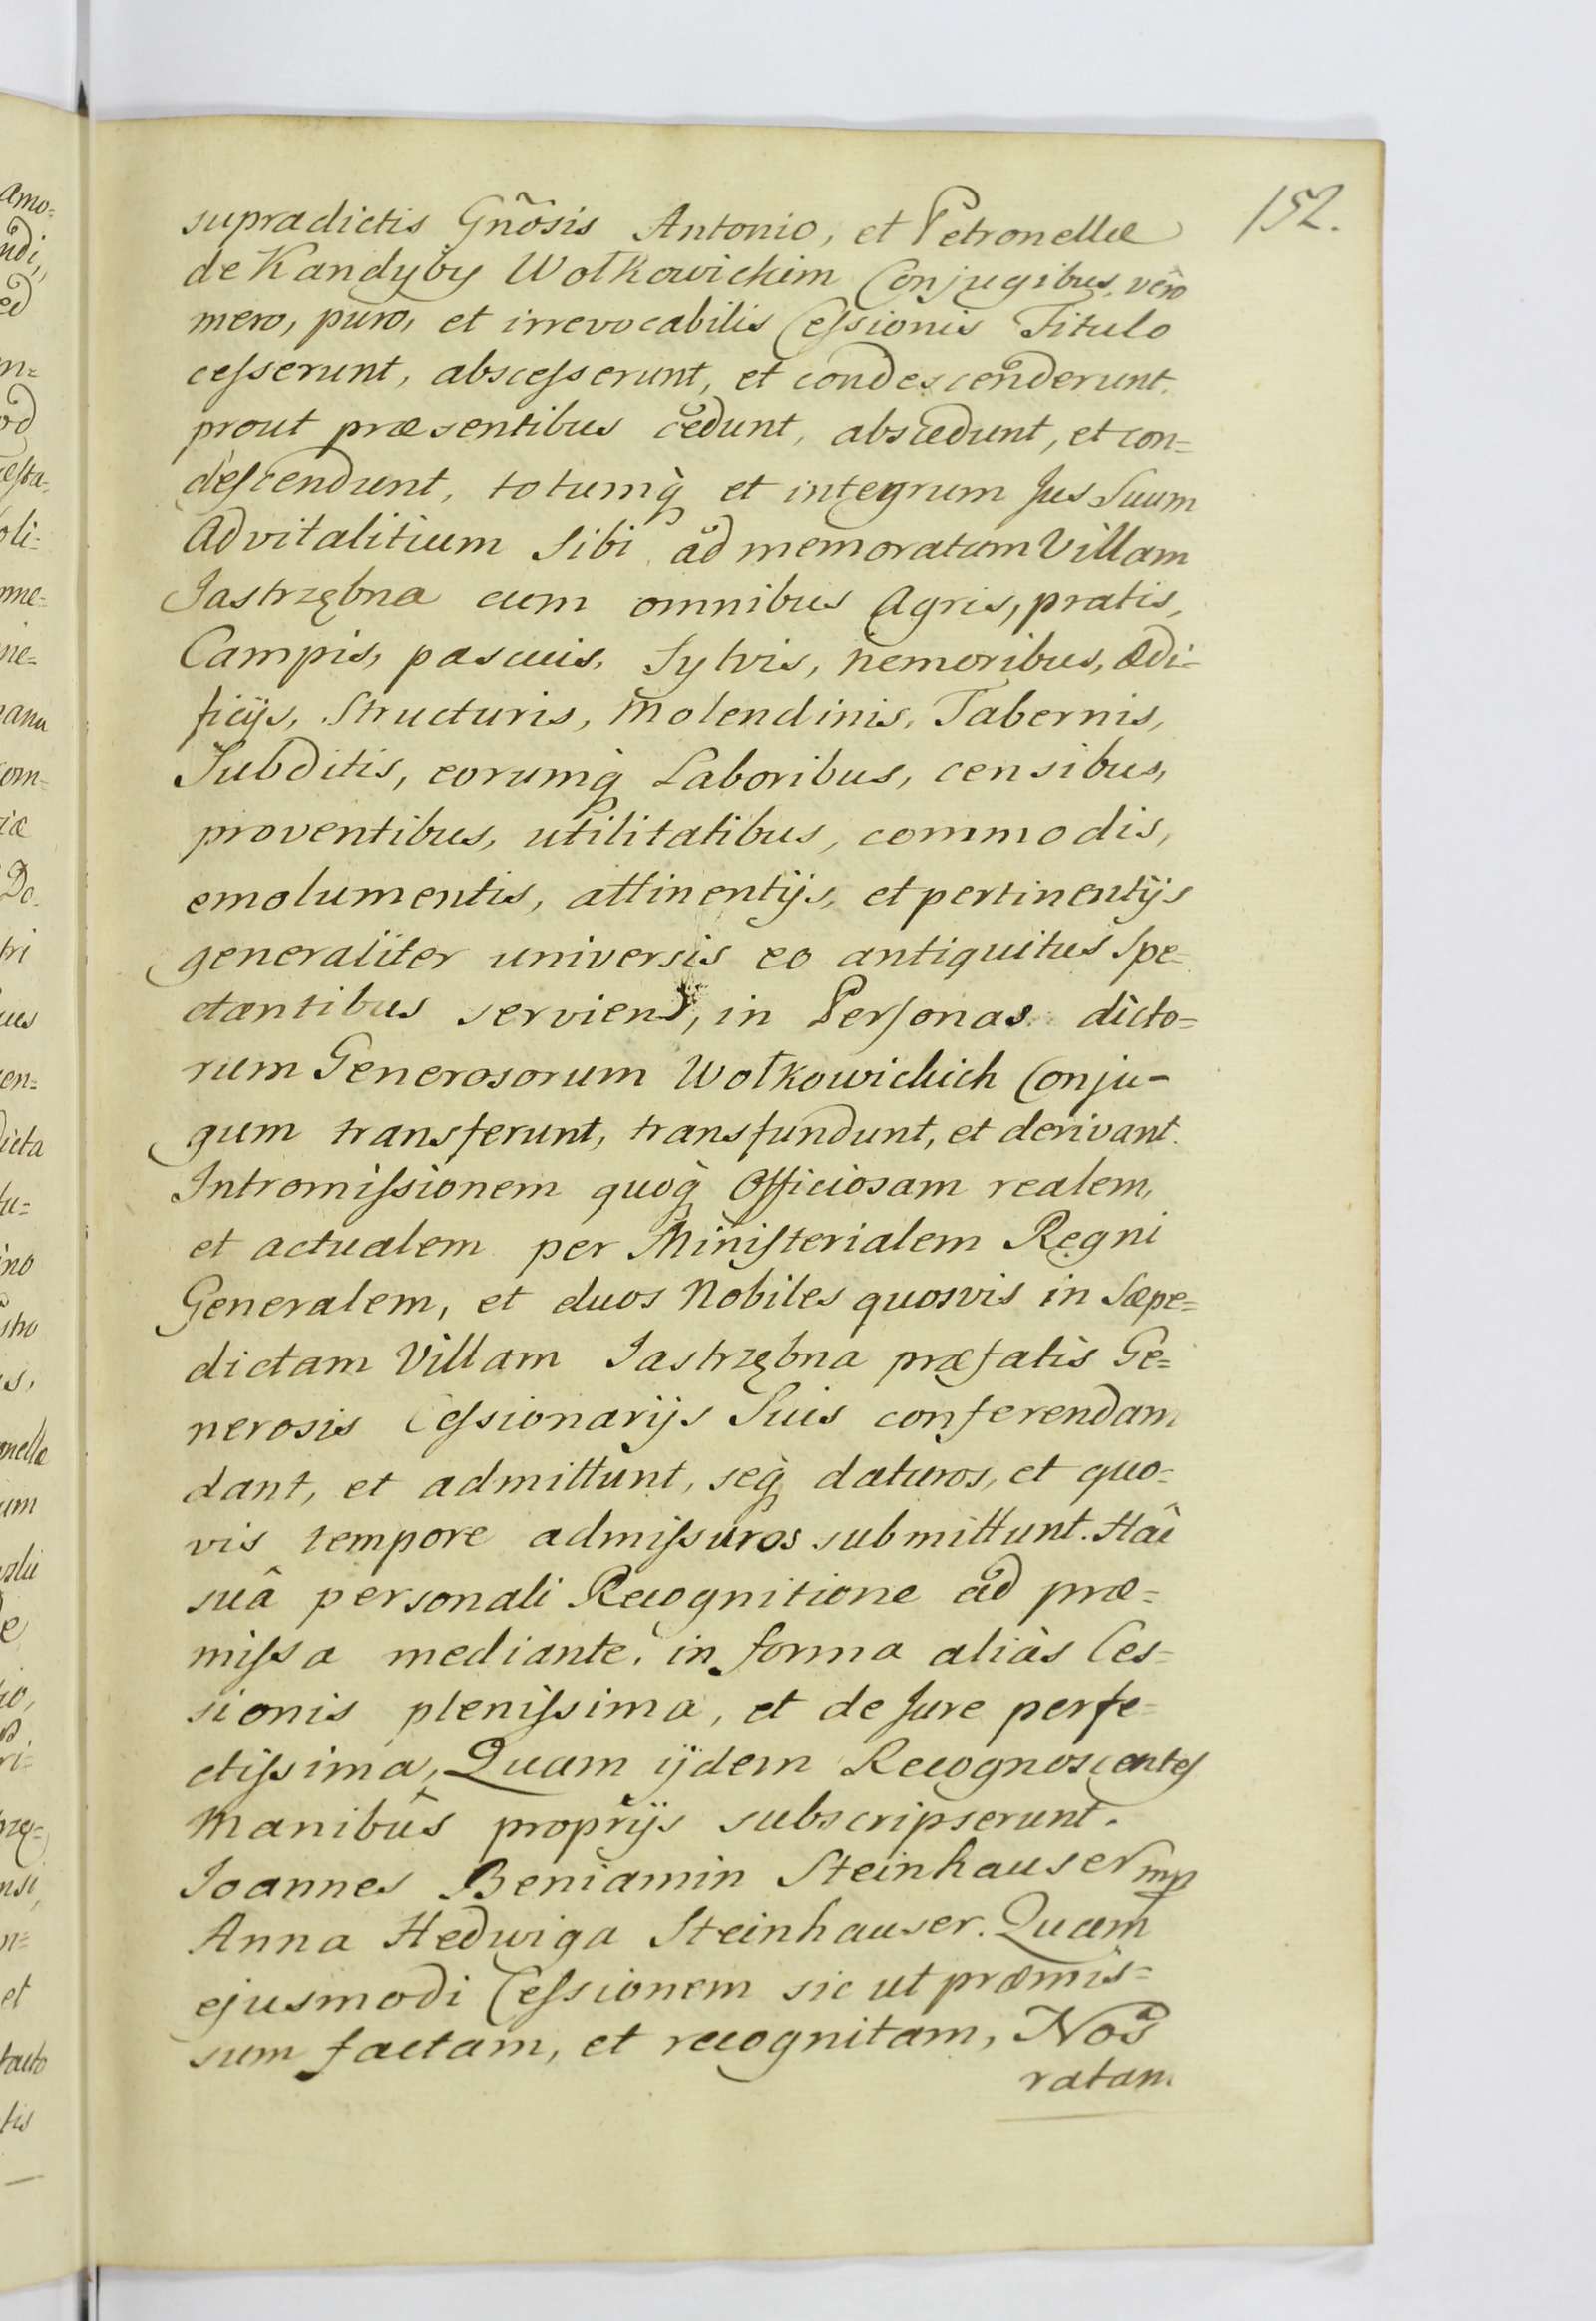 152.
supradictis Gnōsis Antonio, et Petronellæ
de Kandyby Wołkowickim Conjugibus, vēro
mero, puro, et irrevocabilis Cessionis Titulo
cesserunt, abscesserunt, et condescenderunt,
prout præsentibus cedunt, abscedunt, et con=
descendunt, totumq̀ et integrum Jus Suum
Advitalitium Sibi ad memoratam Villam
Jastrzębna cum omnibus Agris, pratis,
Campis, pascuis, Sylvis, nemoribus, ædi=
ficijs, Structuris, Molendinis, Tabernis,
Subditis, eorumq̀ Laboribus, censibus,
proventibus, utilitatibus, commodis,
emolumentis, attinentijs, et pertinentijs
generaliter universis eo antiquitus Spe=
ctantibus serviens, in Personas dicto=
rum Generosorum Wołkowickich Conju-
gum transferunt, transfundunt, et derivant.
Intromissionem quoq̀ Officiosam realem,
et actualem per Ministerialem Regni
Generalem, et duos Nobiles quosvis in Sæpe=
dictam Villam Jastrzębna præfatis Ge=
nerosis Cessionarijs Suis conferendam
dant, et admittunt, seq̀ daturos, et quo=
vis tempore admissuros submittunt. Hac
suâ personali Recognitione ad præ=
missa mediante, in forma aliàs Ces=
sionis plenissima, et de Jure perfe=
ctissima, Quam ijdem Recognoscentes
Manibus proprijs subscripserunt.
Joannes Beniamin Steinhauser mp
Anna Hedwiga Steinhauser. Quam
ejusmodi Cessionem sic ut præmis=
sum factam, et recognitam, Nos
ratam